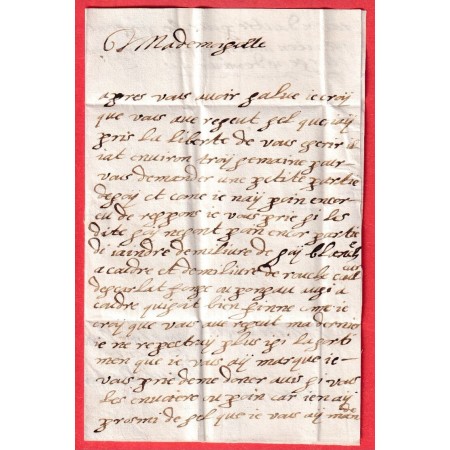 Mademoiselle
apres vous avoir salue ie croy
que vous ave repeut sel que iay
pris la liberte de vous ecrir il
iat environ troy semaine pour
vous demander une petite partie
de soy et come ie nay poin encor
eu de reppons ie vous prie si les
dite soy ne sont poin encor partie
di iaindre demilivre de soy blanch
a coudre et demilivre de rouche
descarlat ausi a
coudre qui soit bien finne come ie
croy que vous ave repeut ma dernier
ie ne repectray plus si lasorti
men que ie vous ay marque ie
vous prie de me doner avis si vous
les envoiere ou poin car ien ay
promi de sel que ie vous ay mande